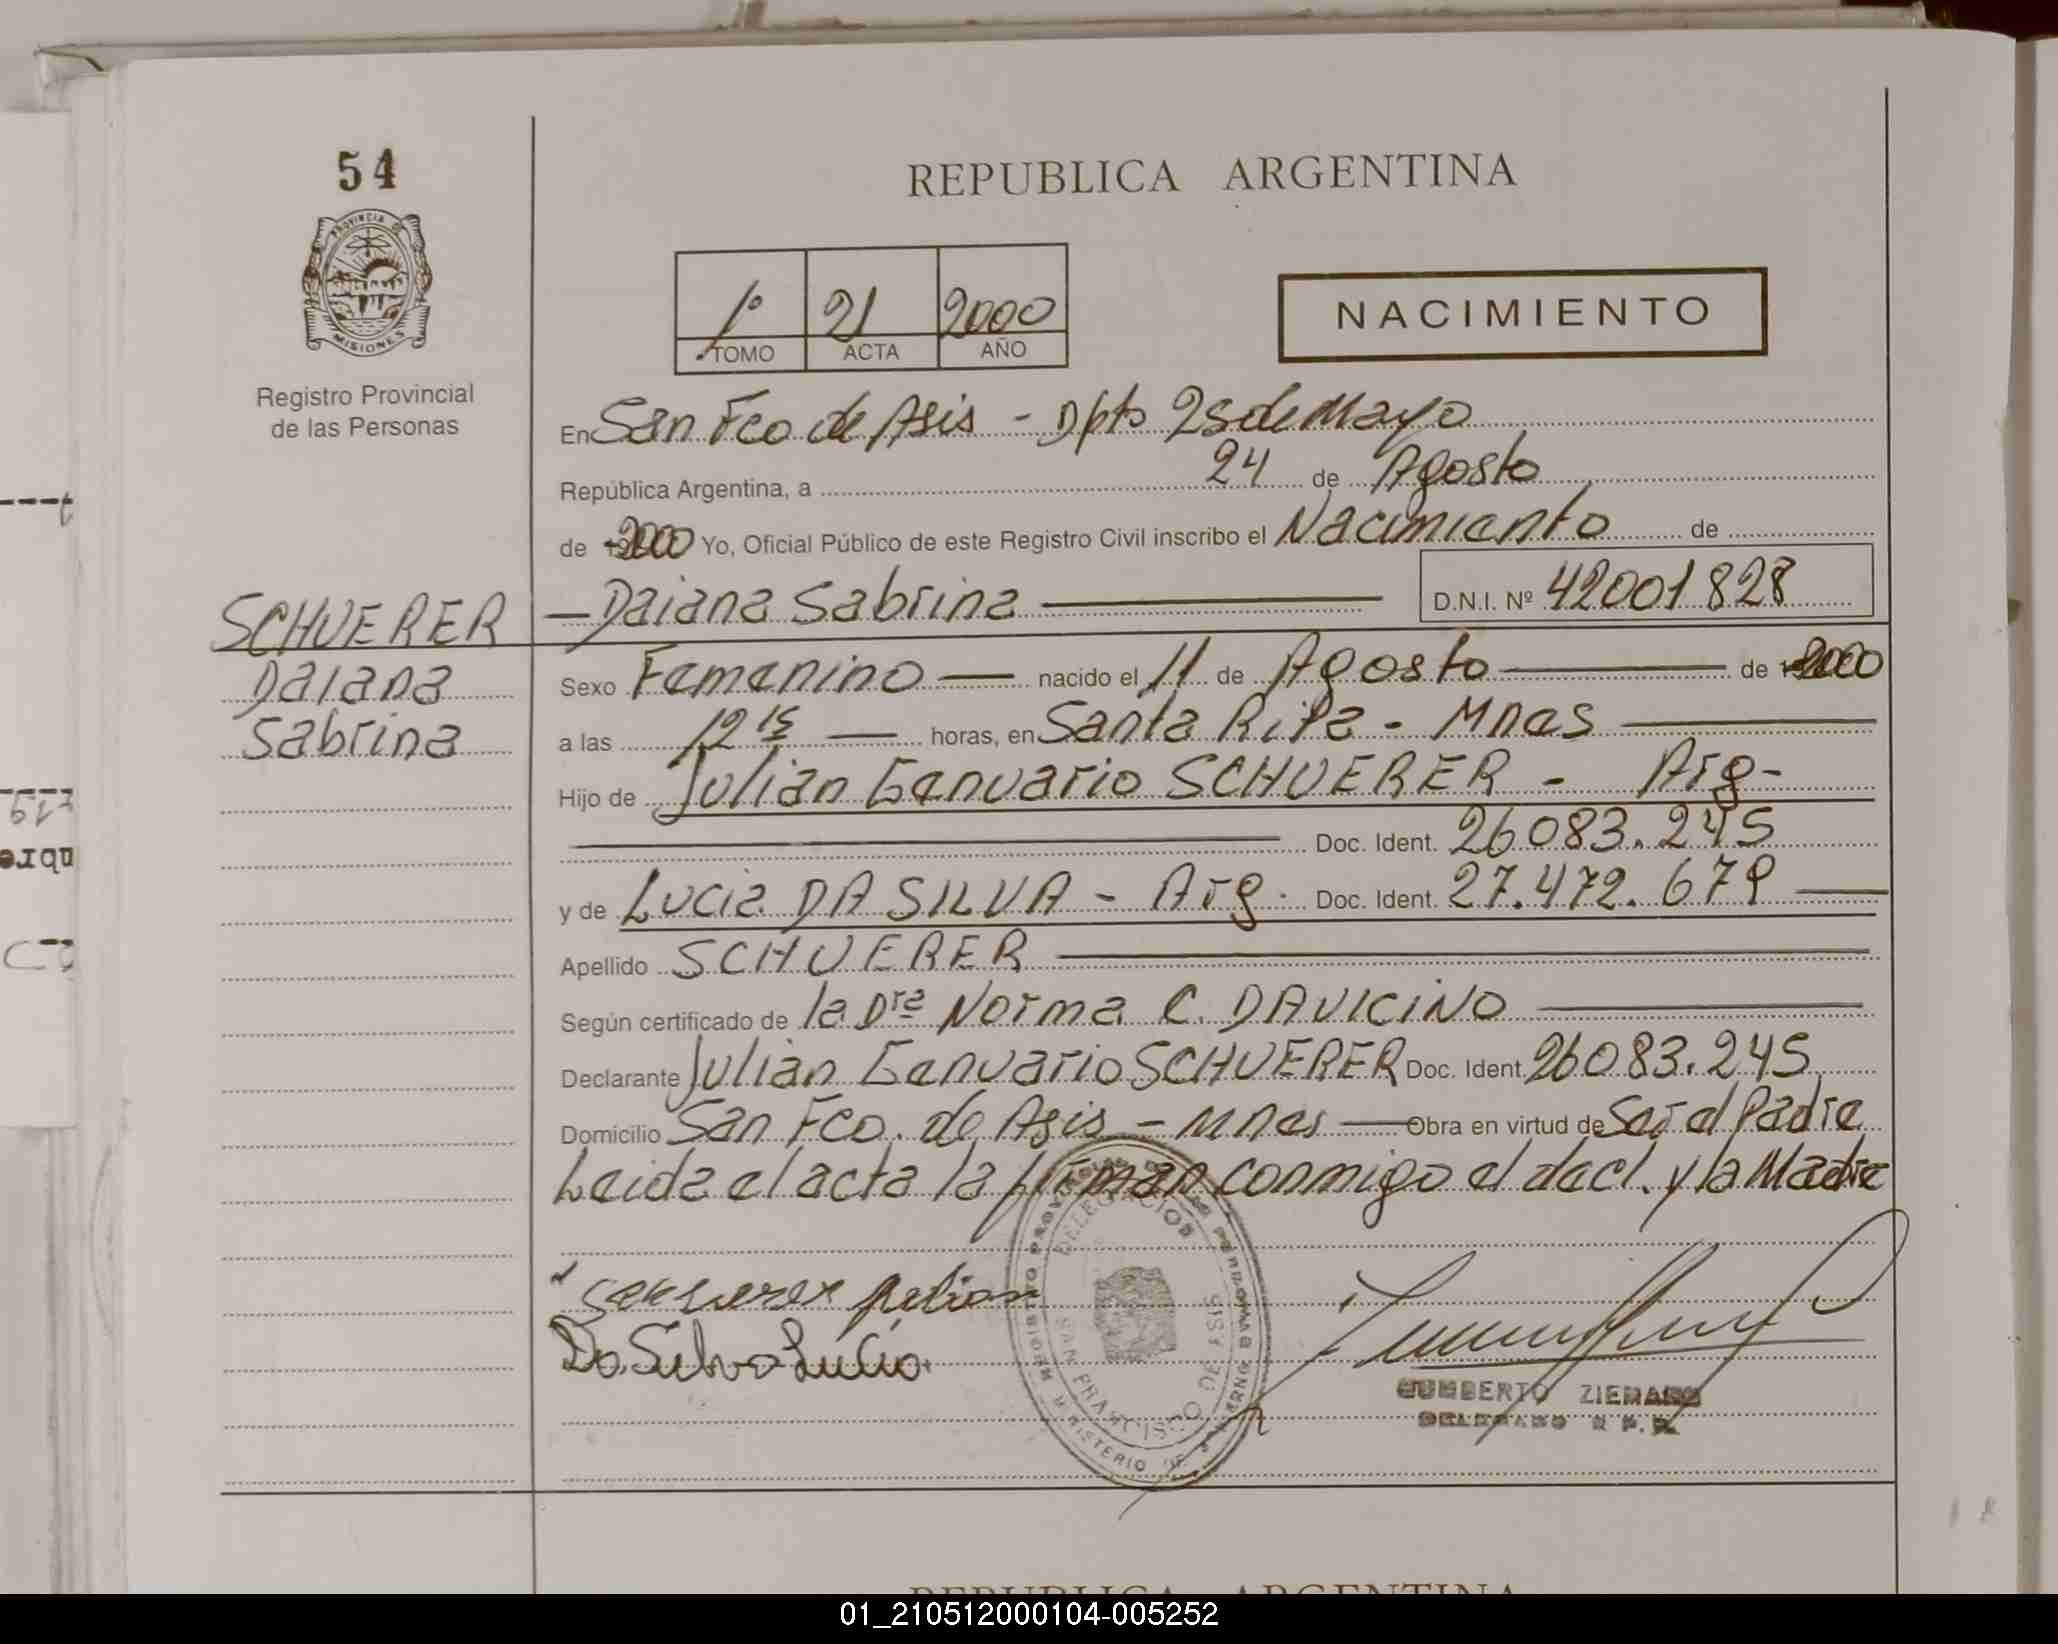 54
PROVINCIA DE
MISIONES
Registro Provincial
de las Personas
SCHUERER
Daiana
Sabrina
REPUBLICA ARGENTINA
1º 21 2000
TOMO ACTA AÑO
NACIMIENTO
En San Fco de Asis - Dpto 25 de Mayo
República Argentina, a 24 de Agosto
de 2000 Yo, Oficial Público de este Registro Civil inscribo el Nacimiento de
Daiana Sabrina D.N.I. Nº 42001828
Sexo Femenino nacido el 11 de Agosto de 2000
a las 12 15 horas, en Santa Rita - Mnes
Hijo de Julian Genuario SCHUERER - Arg -
Doc. Ident. 26083.245
y de Lucia DA SILVA - Arg. Doc. Ident. 27.472.679
Apellido SCHUERER
Según certificado de la Dra Norma C. DAVICINO
Declarante Julian Genuario SCHUERER Doc. Ident. 26083.245
Domicilio San Fco. de Asis - Mnes Obra en virtud de Ser el Padre
Leida el acta la firman conmigo el decl. y la Madre
Da Silva Lucia
DELEGACION
SAN FRANCISCO DE ASIS
MINISTERIO DE GOBIERNO
REGISTRO PROVINCIAL DE LAS PERSONAS
REPUBLICA ARGENTINA
01_210512000104-005252